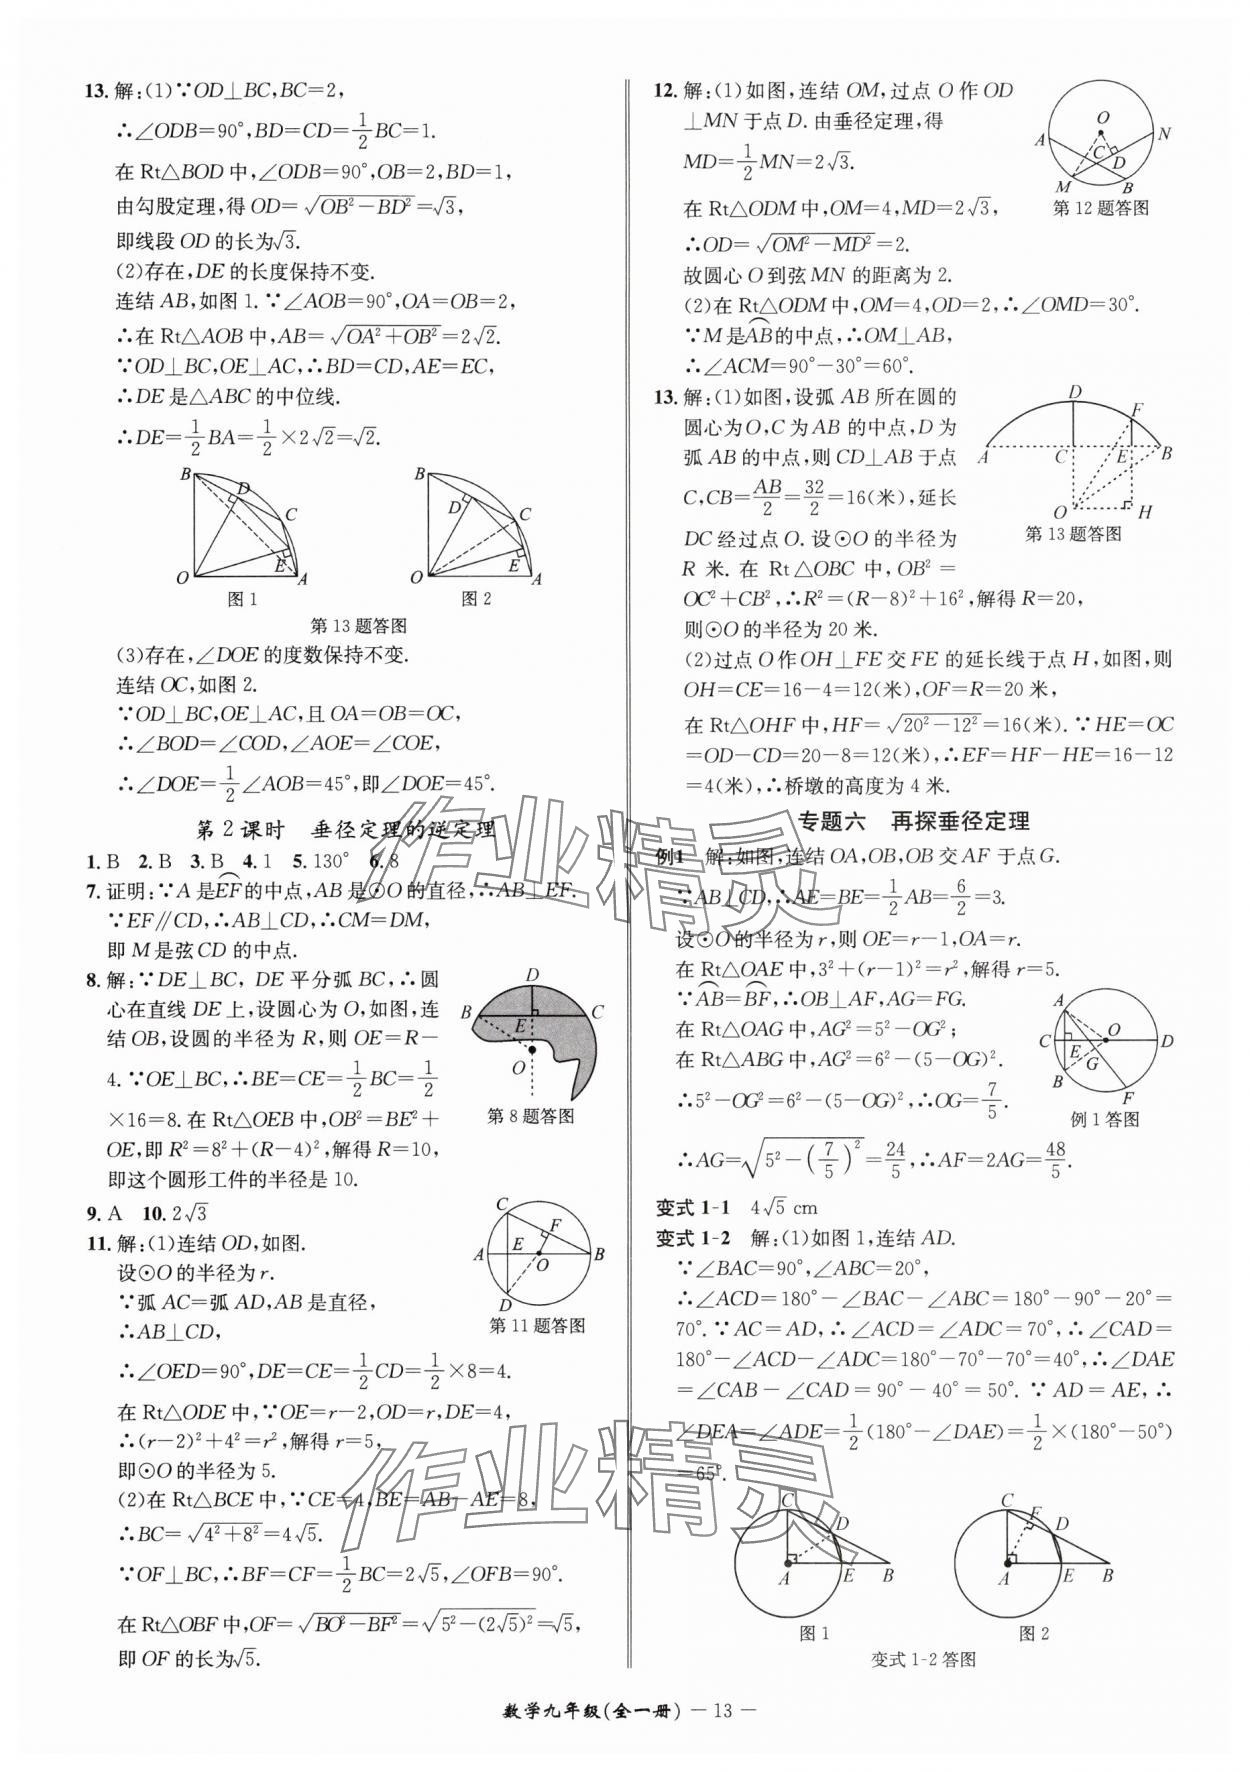 13. 解:(1)∵OD⊥BC,BC=2,
∴∠ODB=90°,BD=CD=1/2BC=1.
在 Rt△BOD 中,∠ODB=90°,OB=2,BD=1,
由勾股定理,得 OD=√(OB²-BD²)=√3,
即线段 OD 的长为√3.
(2)存在,DE 的长度保持不变.
连结 AB,如图 1.∵∠AOB=90°,OA=OB=2,
∴在 Rt△AOB 中,AB=√(OA²+OB²)=2√2.
∵OD⊥BC,OE⊥AC,∴BD=CD,AE=EC,
∴DE 是△ABC 的中位线.
∴DE=1/2BA=1/2×2√2=√2.
B D C E O A
B D C E O A
图 1 图 2
第 13 题答图
(3)存在,∠DOE 的度数保持不变.
连结 OC,如图 2.
∵OD⊥BC,OE⊥AC,且 OA=OB=OC,
∴∠BOD=∠COD,∠AOE=∠COE,
∴∠DOE=1/2∠AOB=45°,即∠DOE=45°.
第 2 课时 垂径定理的逆定理
1. B 2. B 3. B 4. 1 5. 130° 6. 8
7. 证明:∵A 是EF⌒的中点,AB 是⊙O 的直径,∴AB⊥EF.
∵EF∥CD,∴AB⊥CD,∴CM=DM,
即 M 是弦 CD 的中点.
8. 解:∵DE⊥BC, DE 平分弧 BC,∴圆
心在直线 DE 上,设圆心为 O,如图,连
结 OB,设圆的半径为 R,则 OE=R-
4.∵OE⊥BC,∴BE=CE=1/2BC=1/2
×16=8. 在 Rt△OEB 中,OB²=BE²+
OE,即 R²=8²+(R-4)²,解得 R=10,
即这个圆形工件的半径是 10.
D B E C O
第 8 题答图
9. A 10. 2√3
11. 解:(1)连结 OD,如图.
设⊙O 的半径为 r.
∵弧 AC=弧 AD,AB 是直径,
∴AB⊥CD,
C F A E O B D
第 11 题答图
∴∠OED=90°,DE=CE=1/2CD=1/2×8=4.
在 Rt△ODE 中,∵OE=r-2,OD=r,DE=4,
∴(r-2)²+4²=r²,解得 r=5,
即⊙O 的半径为 5.
(2)在 Rt△BCE 中,∵CE=4,BE=AB-AE=8,
∴BC=√(4²+8²)=4√5.
∵OF⊥BC,∴BF=CF=1/2BC=2√5,∠OFB=90°.
在 Rt△OBF 中,OF=√(BO²-BF²)=√(5²-(2√5)²)=√5,
即 OF 的长为√5.
12. 解:(1)如图,连结 OM,过点 O 作 OD
⊥MN 于点 D. 由垂径定理,得
MD=1/2MN=2√3.
O A N C D M B
第 12 题答图
在 Rt△ODM 中,OM=4,MD=2√3,
∴OD=√(OM²-MD²)=2.
故圆心 O 到弦 MN 的距离为 2.
(2)在 Rt△ODM 中,OM=4,OD=2,∴∠OMD=30°.
∵M 是AB⌒的中点,∴OM⊥AB,
∴∠ACM=90°-30°=60°.
13. 解:(1)如图,设弧 AB 所在圆的
圆心为 O,C 为 AB 的中点,D 为
弧 AB 的中点,则 CD⊥AB 于点
C,CB=AB/2=32/2=16(米),延长
DC 经过点 O. 设⊙O 的半径为
R 米. 在 Rt△OBC 中,OB²=
OC²+CB²,∴R²=(R-8)²+16²,解得 R=20,
则⊙O 的半径为 20 米.
D F A C E B O H
第 13 题答图
(2)过点 O 作 OH⊥FE 交 FE 的延长线于点 H,如图,则
OH=CE=16-4=12(米),OF=R=20 米,
在 Rt△OHF 中,HF=√(20²-12²)=16(米).∵HE=OC
=OD-CD=20-8=12(米),∴EF=HF-HE=16-12
=4(米),∴桥墩的高度为 4 米.
专题六 再探垂径定理
例1 解:如图,连结 OA,OB,OB 交 AF 于点 G.
∵AB⊥CD,∴AE=BE=1/2AB=6/2=3.
设⊙O 的半径为 r,则 OE=r-1,OA=r.
在 Rt△OAE 中,3²+(r-1)²=r²,解得 r=5.
∵AB⌒=BF⌒,∴OB⊥AF,AG=FG.
在 Rt△OAG 中,AG²=5²-OG²;
在 Rt△ABG 中,AG²=6²-(5-OG)².
∴5²-OG²=6²-(5-OG)²,∴OG=7/5.
A C E O D B G F
例 1 答图
∴AG=√(5²-(7/5)²)=24/5,∴AF=2AG=48/5.
变式 1-1 4√5 cm
变式 1-2 解:(1)如图 1,连结 AD.
∵∠BAC=90°,∠ABC=20°,
∴∠ACD=180°-∠BAC-∠ABC=180°-90°-20°=
70°.∵AC=AD,∴∠ACD=∠ADC=70°,∴∠CAD=
180°-∠ACD-∠ADC=180°-70°-70°=40°,∴∠DAE
=∠CAB-∠CAD=90°-40°=50°.∵AD=AE,∴
∠DEA=∠ADE=1/2(180°-∠DAE)=1/2×(180°-50°)
=65°.
C D A E B
C F D A E B
图 1 图 2
变式 1-2 答图
作业精灵
作业精灵
数学九年级(全一册) — 13 —